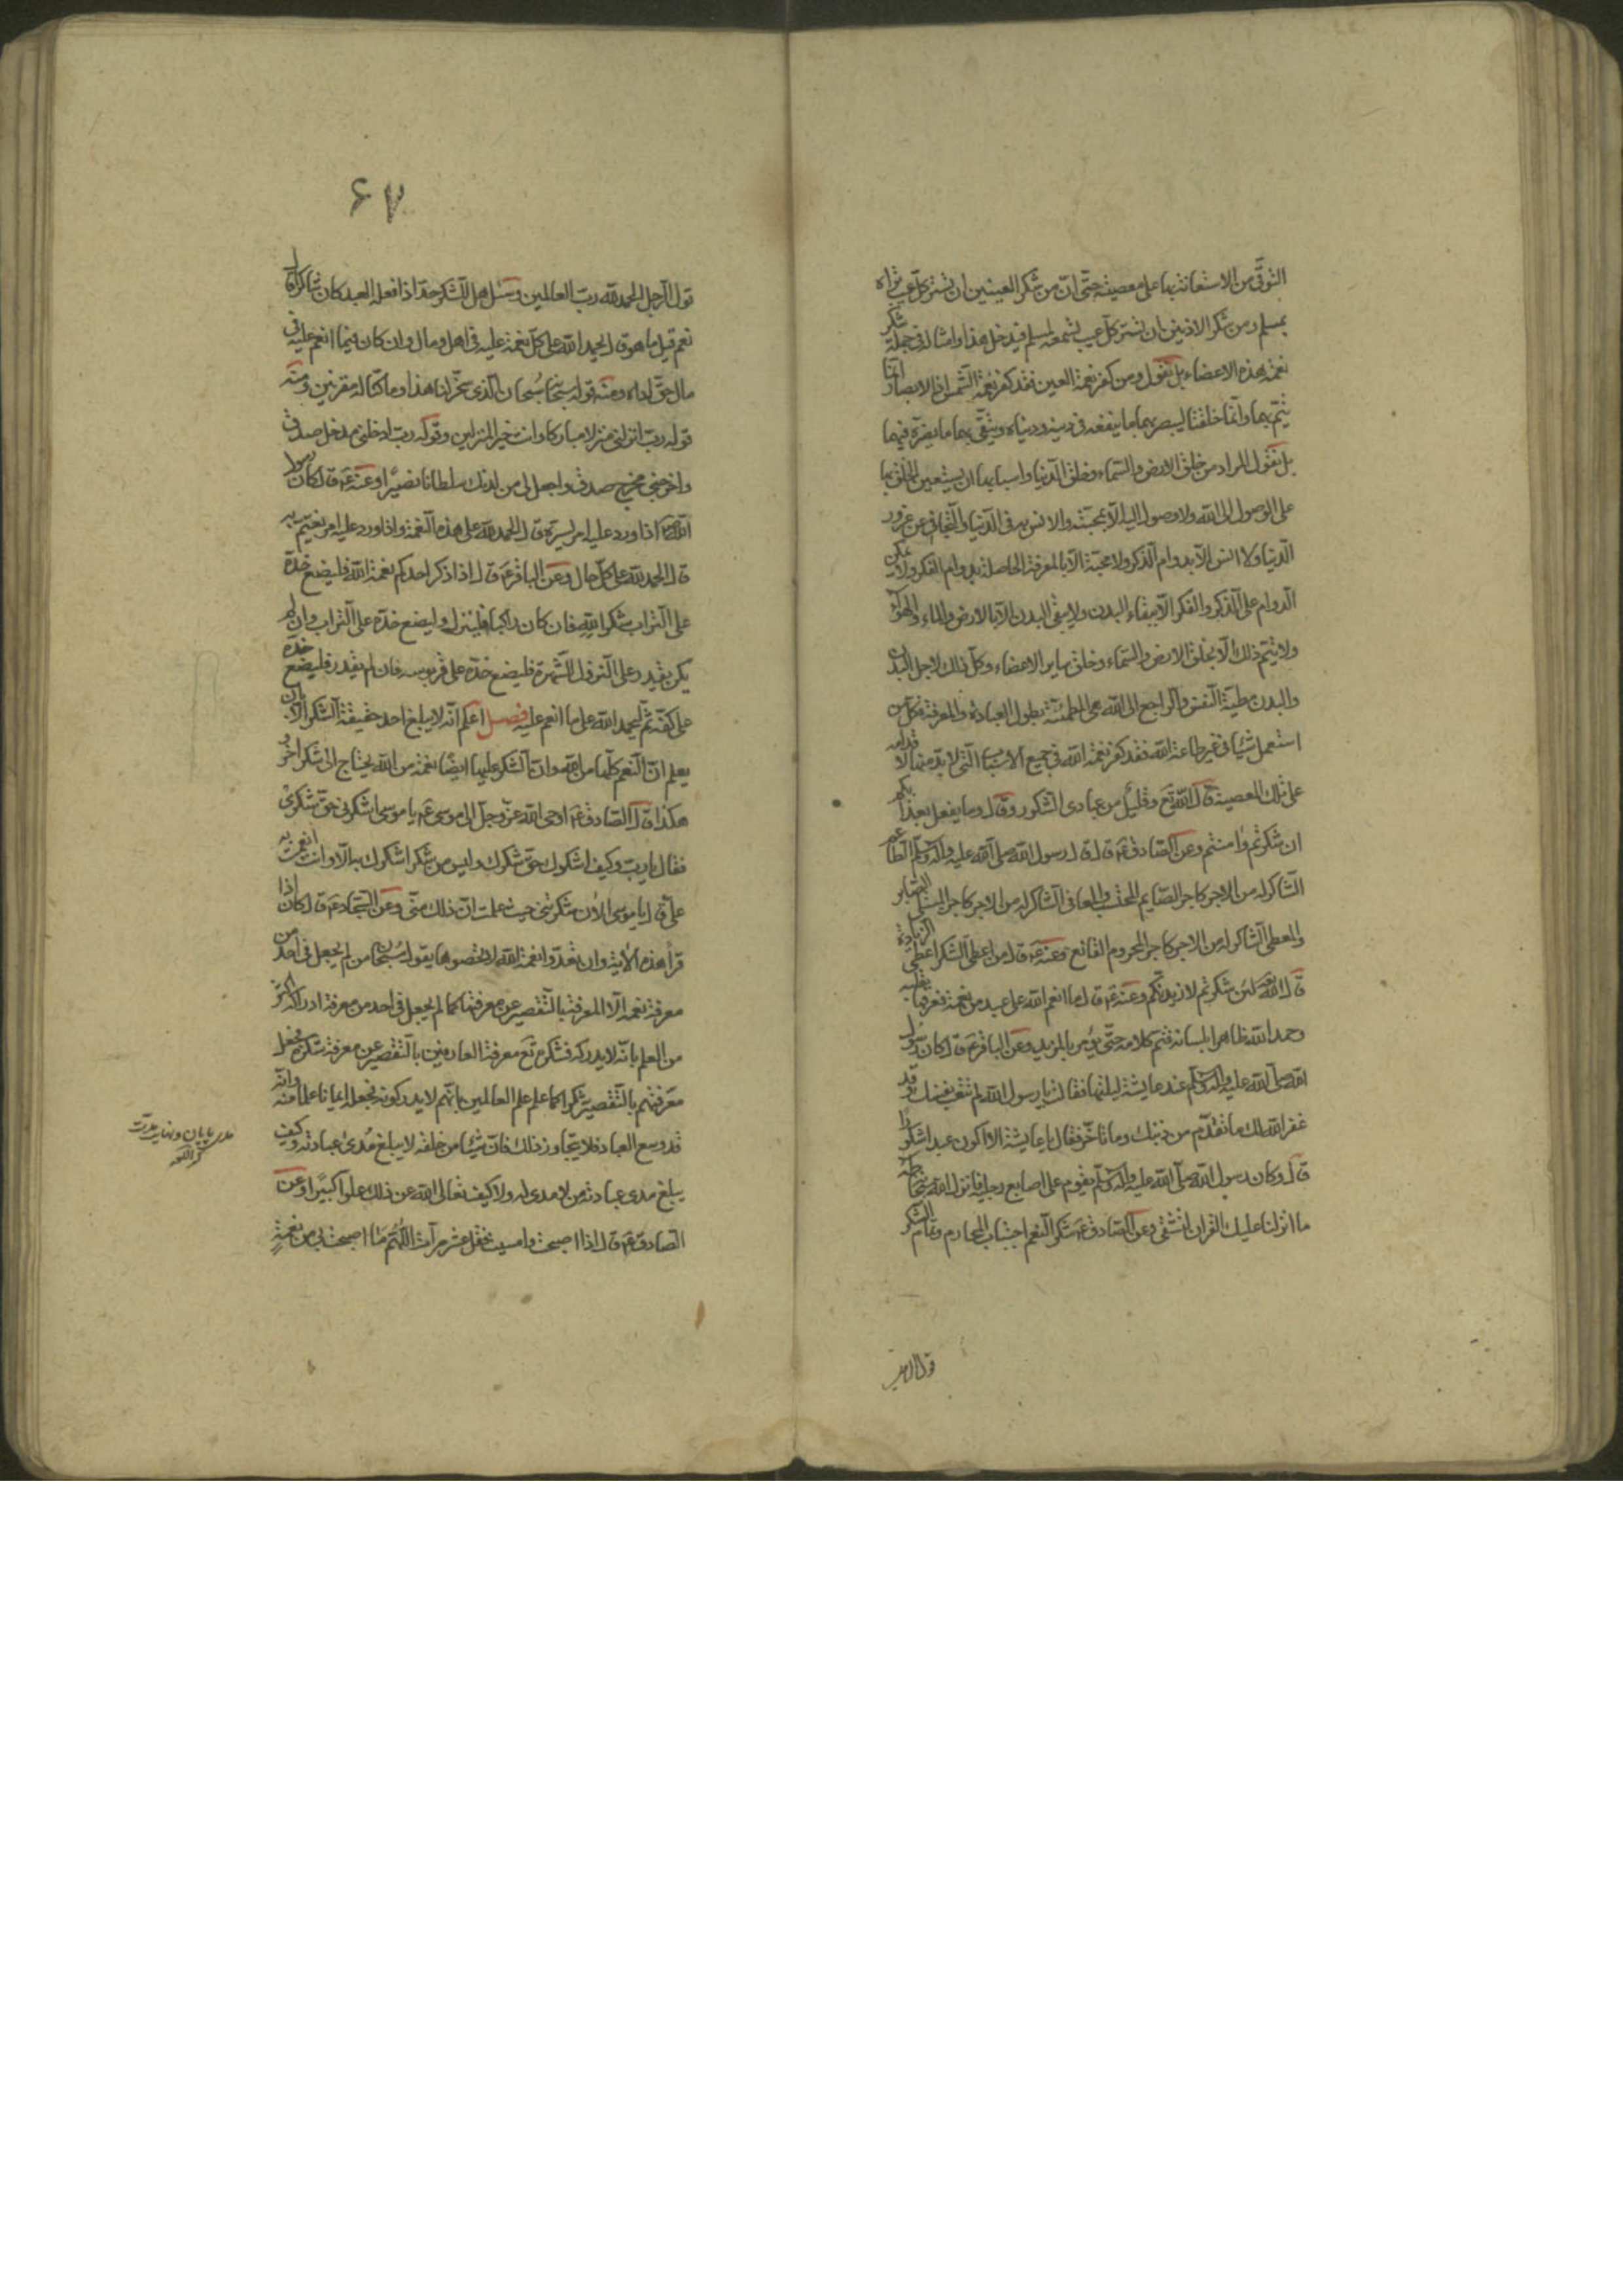 التوقي من الاستعانة بها على معصيته حتى ان من شكر العينين ان تستر كل عيب تراه
بمسلم ومن شكر الاذنين ان تستر كل عيب تسمعه لمسلم فيدخل هذا وامثاله في جملة شكر
نعمة هذه الاعضاء بل نقول ومن كفر نعمة العين فقد كفر نعمة الشمس اذ الابصار انما
يتم بهما وانما خلقتا ليبصر بهما ما ينفعه في دينه ودنياه ويتقي بهما ما يضره فيهما
بل نقول المراد من خلق الارض والسماء وخلق الدنيا واسبابها ان يستعين الخلق بها
على الوصول الى الله ولا وصول اليه الا بمحبته والانس به في الدنيا والتجافي عن غرور
الدنيا ولا انس الا بدوام الذكر ولا محبة الا بالمعرفة الحاصلة بدوام الفكر ولا يمكن
الدوام على الذكر والفكر الا ببقاء البدن ولا يبقى البدن الا بالارض والماء والهواء
ولا يتم ذلك الا بخلق الارض والسماء وخلق ساير الاعضاء وكل ذلك لاجل البدن
والبدن مطية النفس والراجع الى الله هي المطمئنة بطول العبادة والمعرفة فكل من
استعمل شيئا في غير طاعة الله فقد كفر نعمة الله في جميع الاسباب التي لا بد منها لاقدامه
على تلك المعصية قال الله تع وقليل من عبادي الشكور وقال وما يفعل بعذابكم
ان شكرتم وامنتم وعن الصادق ع قال قال رسول الله صلى الله عليه وآله وسلم الطاعم
الشاكر له من الاجر كاجر الصايم المحتسب والمعافى الشاكر له من الاجر كاجر المبتلى الصابر
والمعطى الشاكر له من الاجر كاجر المحروم القانع وعنه ع قال من اعطى الشكر اعطي الزيادة
قال الله لئن شكرتم لازيدنكم وعنه ع قال ما انعم الله على عبد من نعمة فعرفها بقلبه
وحمد الله ظاهرا بلسانه فتم كلامه حتى يؤمر بالمزيد وعن الباقر ع قال كان رسول
الله صلى الله عليه وآله وسلم عند عايشة ليلتها فقالت يا رسول الله لم تتعب نفسك وقد
غفر الله لك ما تقدم من ذنبك وما تاخر فقال يا عايشة الا اكون عبدا شكورا
قال وكان رسول الله صلى الله عليه وآله وسلم يقوم على اصابع رجليه فانزل الله سبحانه طه
ما انزلنا عليك القران لتشقى وعن الصادق ع شكر النعم اجتناب المحارم وتمام الشكر
قول الرجل
۶۷
قول الرجل الحمد لله رب العالمين وسئل هل للشكر حد اذا فعله العبد كان شاكرا قال
نعم قيل ما هو قال الحمد لله على كل نعمة عليه في اهل ومال وان كان فيما انعم عليه في
مال حق اداه ومنه قوله سبحانه سبحان الذي سخر لنا هذا وما كنا له مقرنين ومنه
قوله رب انزلني منزلا مباركا وانت خير المنزلين وقوله رب ادخلني مدخل صدق
واخرجني مخرج صدق واجعل لي من لدنك سلطانا نصيرا وعنه ع قال كان رسول
الله ص اذا ورد عليه امر يسره قال الحمد لله على هذه النعمة واذا ورد عليه امر يغتم به
قال الحمد لله على كل حال وعن الباقر ع قال اذا ذكر احدكم نعمة الله فليضع خده
على التراب شكرا لله فان كان راكبا فلينزل وليضع خده على التراب وان لم
يكن يقدر على النزول للشهرة فليضع خده على قربوسه فان لم يقدر فليضع خده
على كفه ثم ليحمد الله على ما انعم عليه فصل اعلم انه لا يبلغ احد حقيقة الشكر الا بان
يعلم ان النعم كلها من الله وان الشكر عليها ايضا نعمة من الله يحتاج الى شكر اخر
هكذا قال الصادق ع اوحى الله عز وجل الى موسى ع يا موسى اشكرني حق شكري
فقال يا رب وكيف اشكرك حق شكرك وليس من شكر اشكرك به الا وانت انعمت به
علي قال يا موسى الان شكرتني حيث علمت ان ذلك مني وعن السجاد ع قال كان اذا
قرأ هذه الآية وان تعدوا نعمة الله لا تحصوها يقول سبحان من لم يجعل في احد من
معرفة نعمه الا المعرفة بالتقصير عن معرفتها كما لم يجعل في احد من معرفة ادراكه اكثر
من العلم بانه لا يدركه فشكر تع معرفة العارفين بالتقصير عن معرفة شكره فجعل
معرفتهم بالتقصير شكرا كما علم علم العالمين بانهم لا يدركونه فجعله ايمانا علما منه وانه
قد وسع العباد فلا يتجاوز ذلك فان شيئا من خلقه لا يبلغ مدى عبادته وكيف
يبلغ مدى عبادته من لا مدى له ولا كيف تعالى الله عن ذلك علوا كبيرا وعن
الصادق ع قال اذا اصبحت وامسيت فقل عشر مرات اللهم ما اصبحت بي من نعمة
مدى پايان ونهايت مدت
كنز اللغه